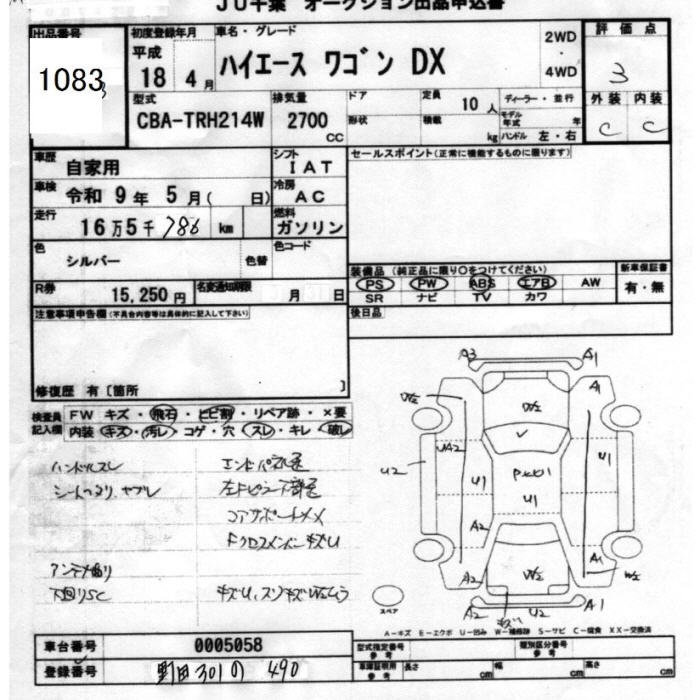 JU千葉 オークション出品申込書
出品番号 初度登録年月 車名・グレード 2WD ・ 4WD 評価点
1083 平成 18 4月 ハイエース ワゴン DX 3
型式 排気量 ドア 定員 10人 ディーラー・並行 外装 内装
CBA-TRH214W 2700 CC 形状 積載 kg モデル年式 年 ハンドル 左・右 C C
車歴 自家用 シフト IAT セールスポイント(正常に機能するものに限ります)
車検 令和 9年 5月( 日) 冷房 AC
走行 16万5千786 km 燃料 ガソリン
色 シルバー 色替 色コード
装備品 (純正品に限り○をつけてください) 新車保証書
R券 15,250円 名変通知期限 月 日 PS PW ABS エアB AW 有・無
SR ナビ TV カワ
注意事項申告欄(不具合内容等は具体的に記入して下さい) 後日品
修復歴 有〔箇所 〕
検査員記入欄 FW キズ・飛石・ヒビ割・リペア跡・×要
内装 キズ・汚レ・コゲ・穴・スレ・キレ・破レ
ハンドルスレ
シートヘリ、ヤブレ
コアサポートメメ
FクロスメンバーキズU
アンテナ曲り
下回りSC
A3 A1
W2 A1
UA2 U1
U2 U1 U1
A2 A1
A2 W2 W2
A2 キズ U2 A1
スペア
A-キズ E-エクボ U-凹み W-補修跡 S-サビ C-腐食 XX-交換済
車台番号 0005058 型式指定番号 参考 類別区分番号 参考
登録番号 野田 301 の 490 車庫証明用 参考 長さ cm 幅 cm 高さ cm